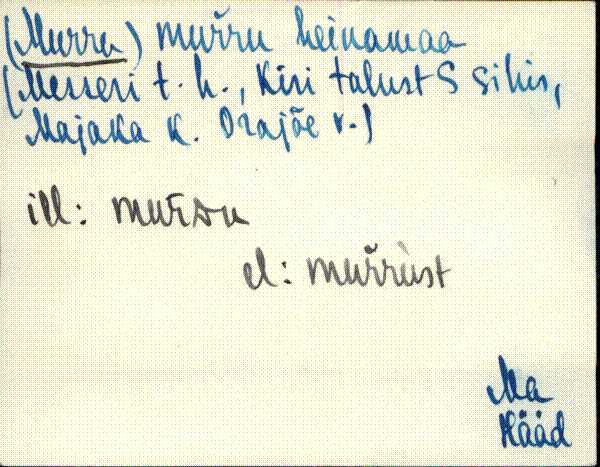 (Murru) muř̌ru heinamaa
(Messeri t. h., Kisi talust S sihis,
Majaka k. Orajõe v.)
ill: mur̄ŏu
el: muř̌rùst
Ma
Hääd